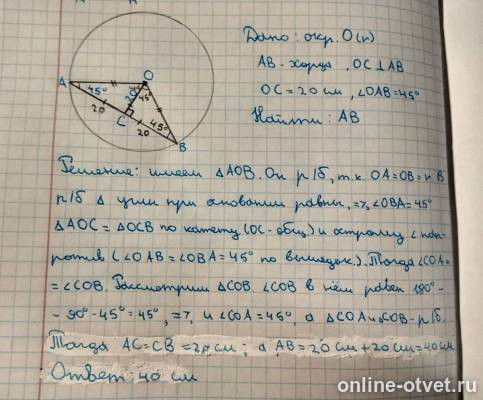 Дано: окр. O(r)
AB - хорда, OC⊥AB
OC = 20 см, ∠OAB = 45°
Найти: AB
A
O
45°
20
45°
20
C
20
45°
B
Решение: имеем △AOB. Он р/б, т.к. OA = OB = r В
р/б △ углы при основании равны, =>, ∠OBA = 45°
△AOC = △OCB по катету (OC - общ.) и острому ∠ нап-
ротив (∠OAB = ∠OBA = 45° по вышедок.). Тогда ∠COA =
= ∠COB. Рассмотрим △COB. ∠COB в нём равен 180° -
- 90° - 45° = 45°, =>, и ∠COA = 45°, а △COA и COB - р/б.
Тогда AC = CB = 20 см; а AB = 20 см + 20 см = 40 см
Ответ: 40 см
online-otvet.ru